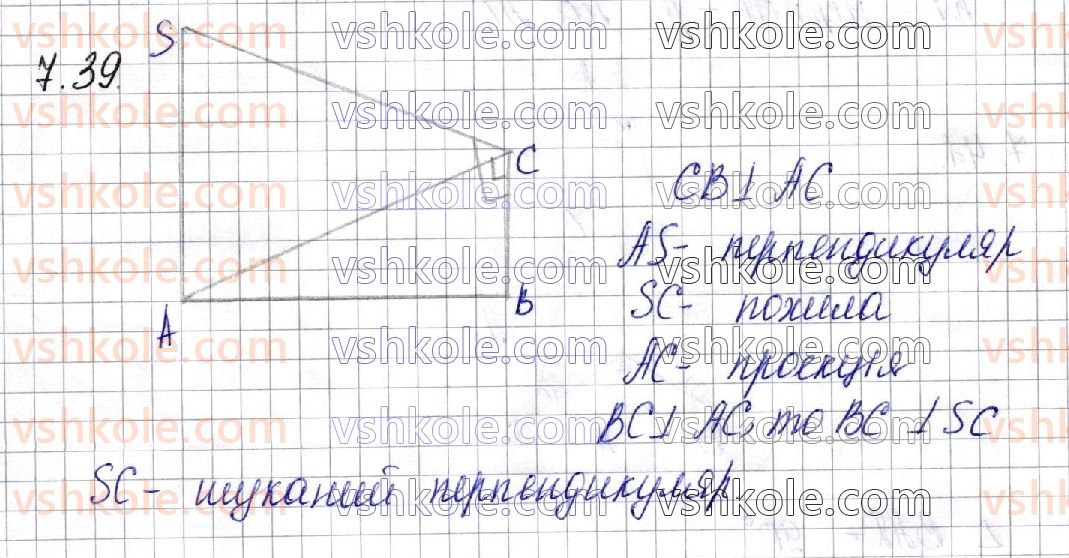 7.39.
S
C
A
B
CB ⊥ AC
AS - перпендикуляр
SC - похила
AC - проекція
BC ⊥ AC, то BC ⊥ SC
SC - шуканий перпендикуляр
vshkole.com